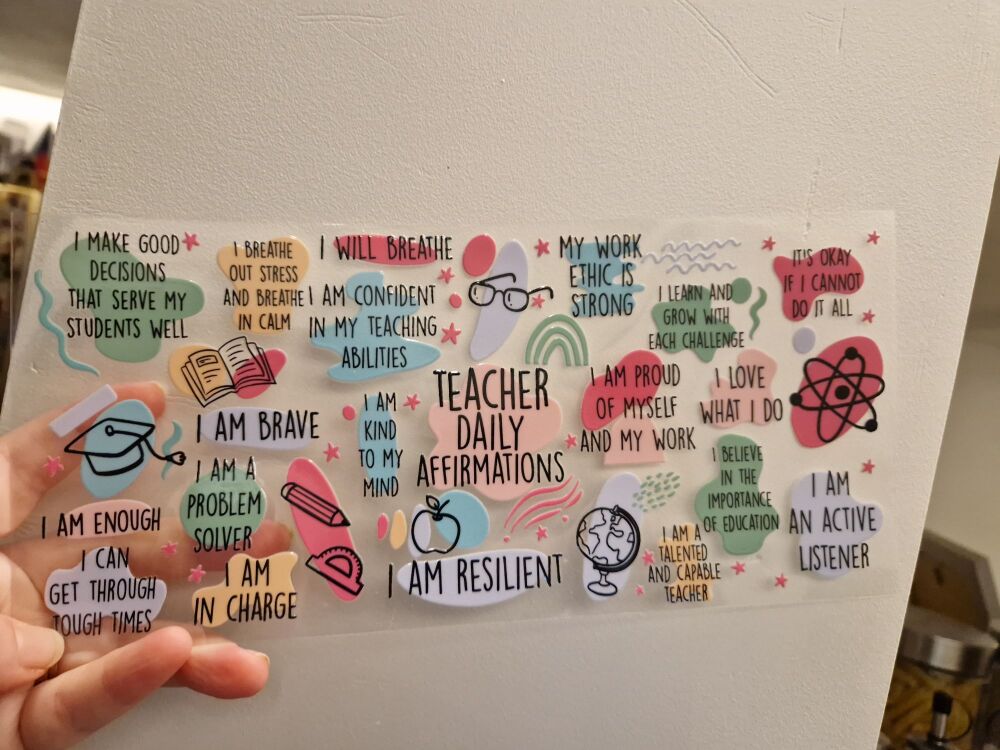 I MAKE GOOD
DECISIONS
THAT SERVE MY
STUDENTS WELL
I BREATHE
OUT STRESS
AND BREATHE
IN CALM
I WILL BREATHE
I AM CONFIDENT
IN MY TEACHING
ABILITIES
MY WORK
ETHIC IS
STRONG
I LEARN AND
GROW WITH
EACH CHALLENGE
IT'S OKAY
IF I CANNOT
DO IT ALL
I AM BRAVE
I AM
KIND
TO MY
MIND
TEACHER
DAILY
AFFIRMATIONS
I AM PROUD
OF MYSELF
AND MY WORK
I LOVE
WHAT I DO
I AM ENOUGH
I AM A
PROBLEM
SOLVER
I BELIEVE
IN THE
IMPORTANCE
OF EDUCATION
I AM
AN ACTIVE
LISTENER
I CAN
GET THROUGH
TOUGH TIMES
I AM
IN CHARGE
I AM RESILIENT
I AM A
TALENTED
AND CAPABLE
TEACHER